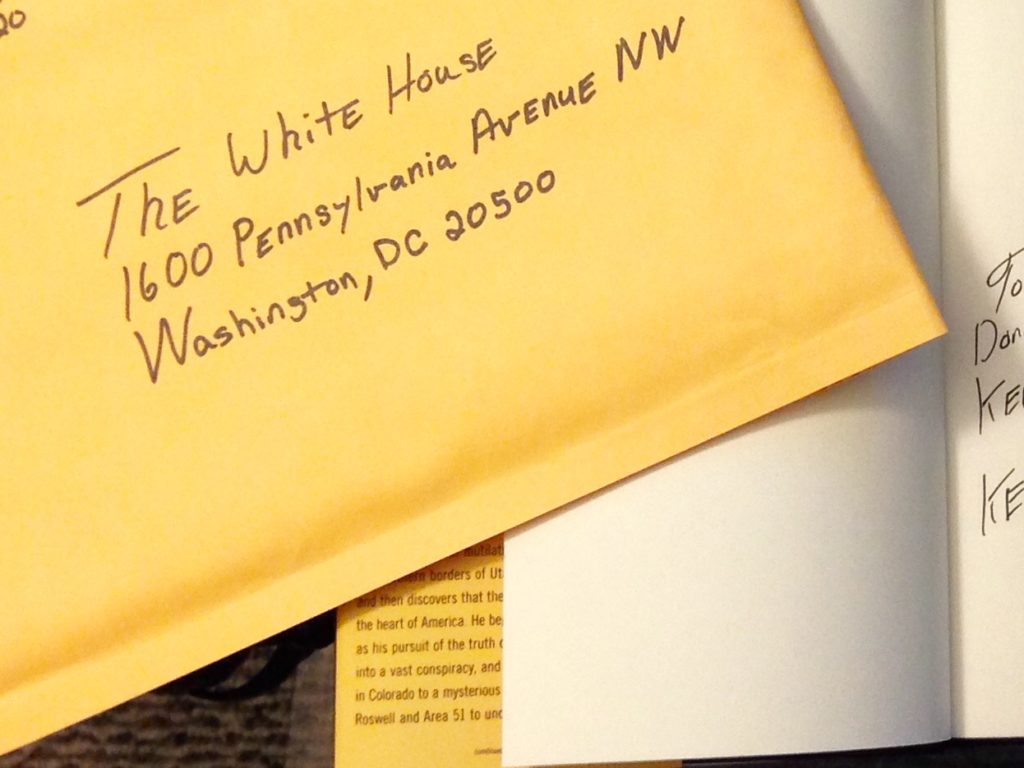 20
The White House
1600 Pennsylvania Avenue NW
Washington, DC 20500
borders of
and then discovers that the
the heart of America. He
as his pursuit of the truth
into a vast conspiracy, and
in Colorado to a mysterious
Roswell and Area 51 to